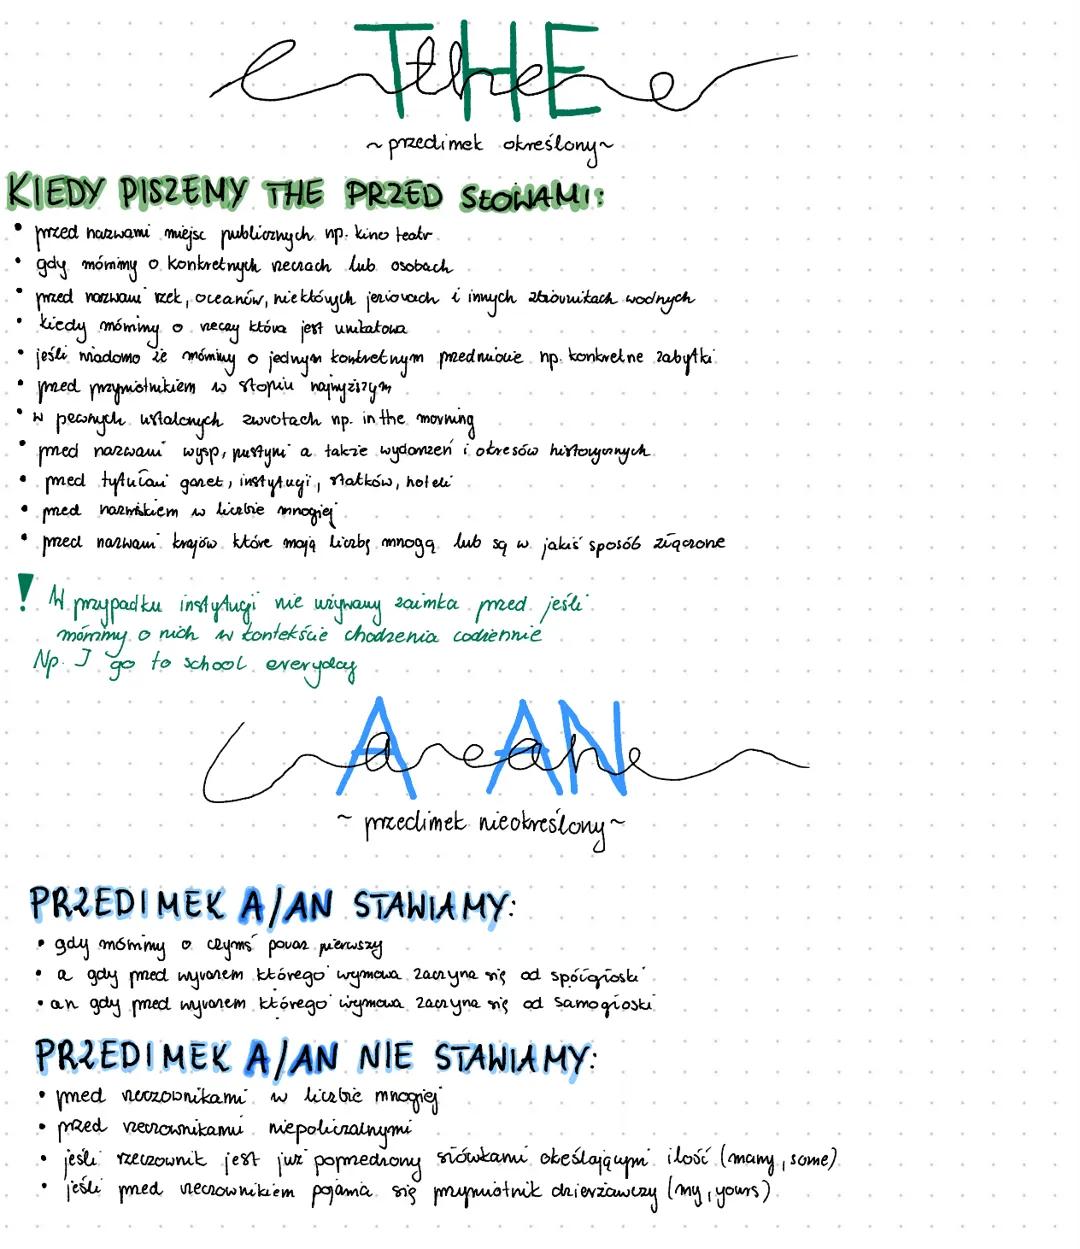 THE
the
~przedimek określony~
KIEDY PISZEMY THE PRZED SŁOWAMI:
• przed nazwami miejsc publicznych np. kino teatr
• gdy mówimy o konkretnych rzeczach lub osobach
• przed nazwami rzek, oceanów, niektórych jeziorach i innych zbiornikach wodnych
• kiedy mówimy o rzeczy która jest unikatowa
• jeśli wiadomo że mówimy o jednym konkretnym przedmiocie np. konkretne zabytki
• przed przymiotnikiem w stopniu najwyższym
• w pewnych ustalonych zwrotach np. in the morning
• przed nazwami wysp, pustyni a także wydarzeń i okresów historycznych
• przed tytułami gazet, instytucji, statków, hoteli
• przed nazwiskiem w liczbie mnogiej
• przed nazwami krajów które mają liczbę mnogą lub są w jakiś sposób złączone
! W przypadku instytucji nie używamy zaimka przed jeśli
mówimy o nich w kontekście chodzenia codziennie
Np. I go to school everyday
A AN
a an
~ przedimek nieokreślony ~
PRZEDIMEK A/AN STAWIAMY:
• gdy mówimy o czymś poraz pierwszy
• a gdy przed wyrazem którego wymowa zaczyna się od spółgłoski
• an gdy przed wyrazem którego wymowa zaczyna się od samogłoski
PRZEDIMEK A/AN NIE STAWIAMY:
• przed rzeczownikami w liczbie mnogiej
• przed rzeczownikami niepoliczalnymi
• jeśli rzeczownik jest już poprzedzony słówkami określającymi ilość (many, some)
• jeśli przed rzeczownikiem pojawia się przymiotnik dzierżawczy (my, yours)